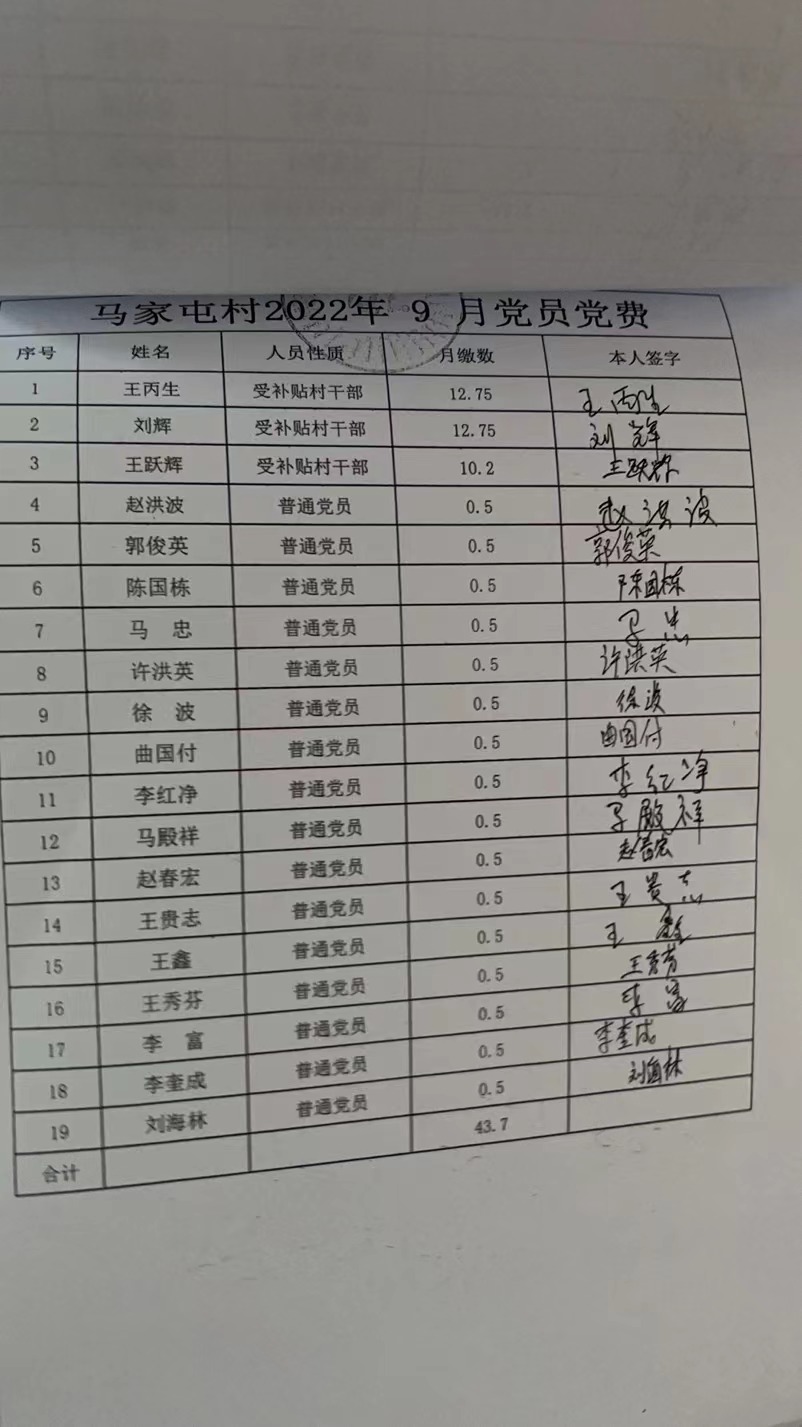 马家屯村2022年 9 月党员党费
序号 姓名 人员性质 月缴数 本人签字
1 王丙生 受补贴村干部 12.75 王丙生
2 刘辉 受补贴村干部 12.75 刘辉
3 王跃辉 受补贴村干部 10.2 王跃辉
4 赵洪波 普通党员 0.5 赵洪波
5 郭俊英 普通党员 0.5 郭俊英
6 陈国栋 普通党员 0.5 陈国栋
7 马 忠 普通党员 0.5 马忠
8 许洪英 普通党员 0.5 许洪英
9 徐 波 普通党员 0.5 徐波
10 曲国付 普通党员 0.5 曲国付
11 李红净 普通党员 0.5 李红净
12 马殿祥 普通党员 0.5 马殿祥
13 赵春宏 普通党员 0.5 赵春宏
14 王贵志 普通党员 0.5 王贵志
15 王鑫 普通党员 0.5 王鑫
16 王秀芬 普通党员 0.5 王秀芬
17 李 富 普通党员 0.5 李富
18 李奎成 普通党员 0.5 李奎成
19 刘海林 普通党员 0.5 刘海林
合计 43.7